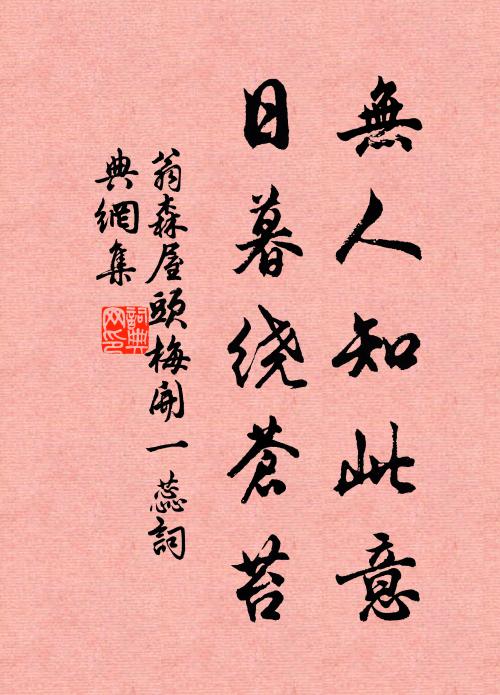 無人知此意
日暮绕蒼苔
翁森屋頭梅開一蕊詞
典網集
詞典
网印